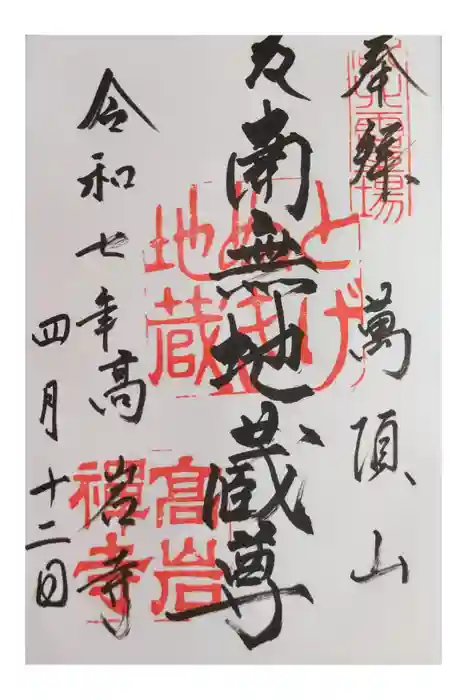 奉拝
萬頂山
南無地蔵尊
令和七年
四月十二日
高岩寺
とげぬき
地蔵
髙岩
禅寺